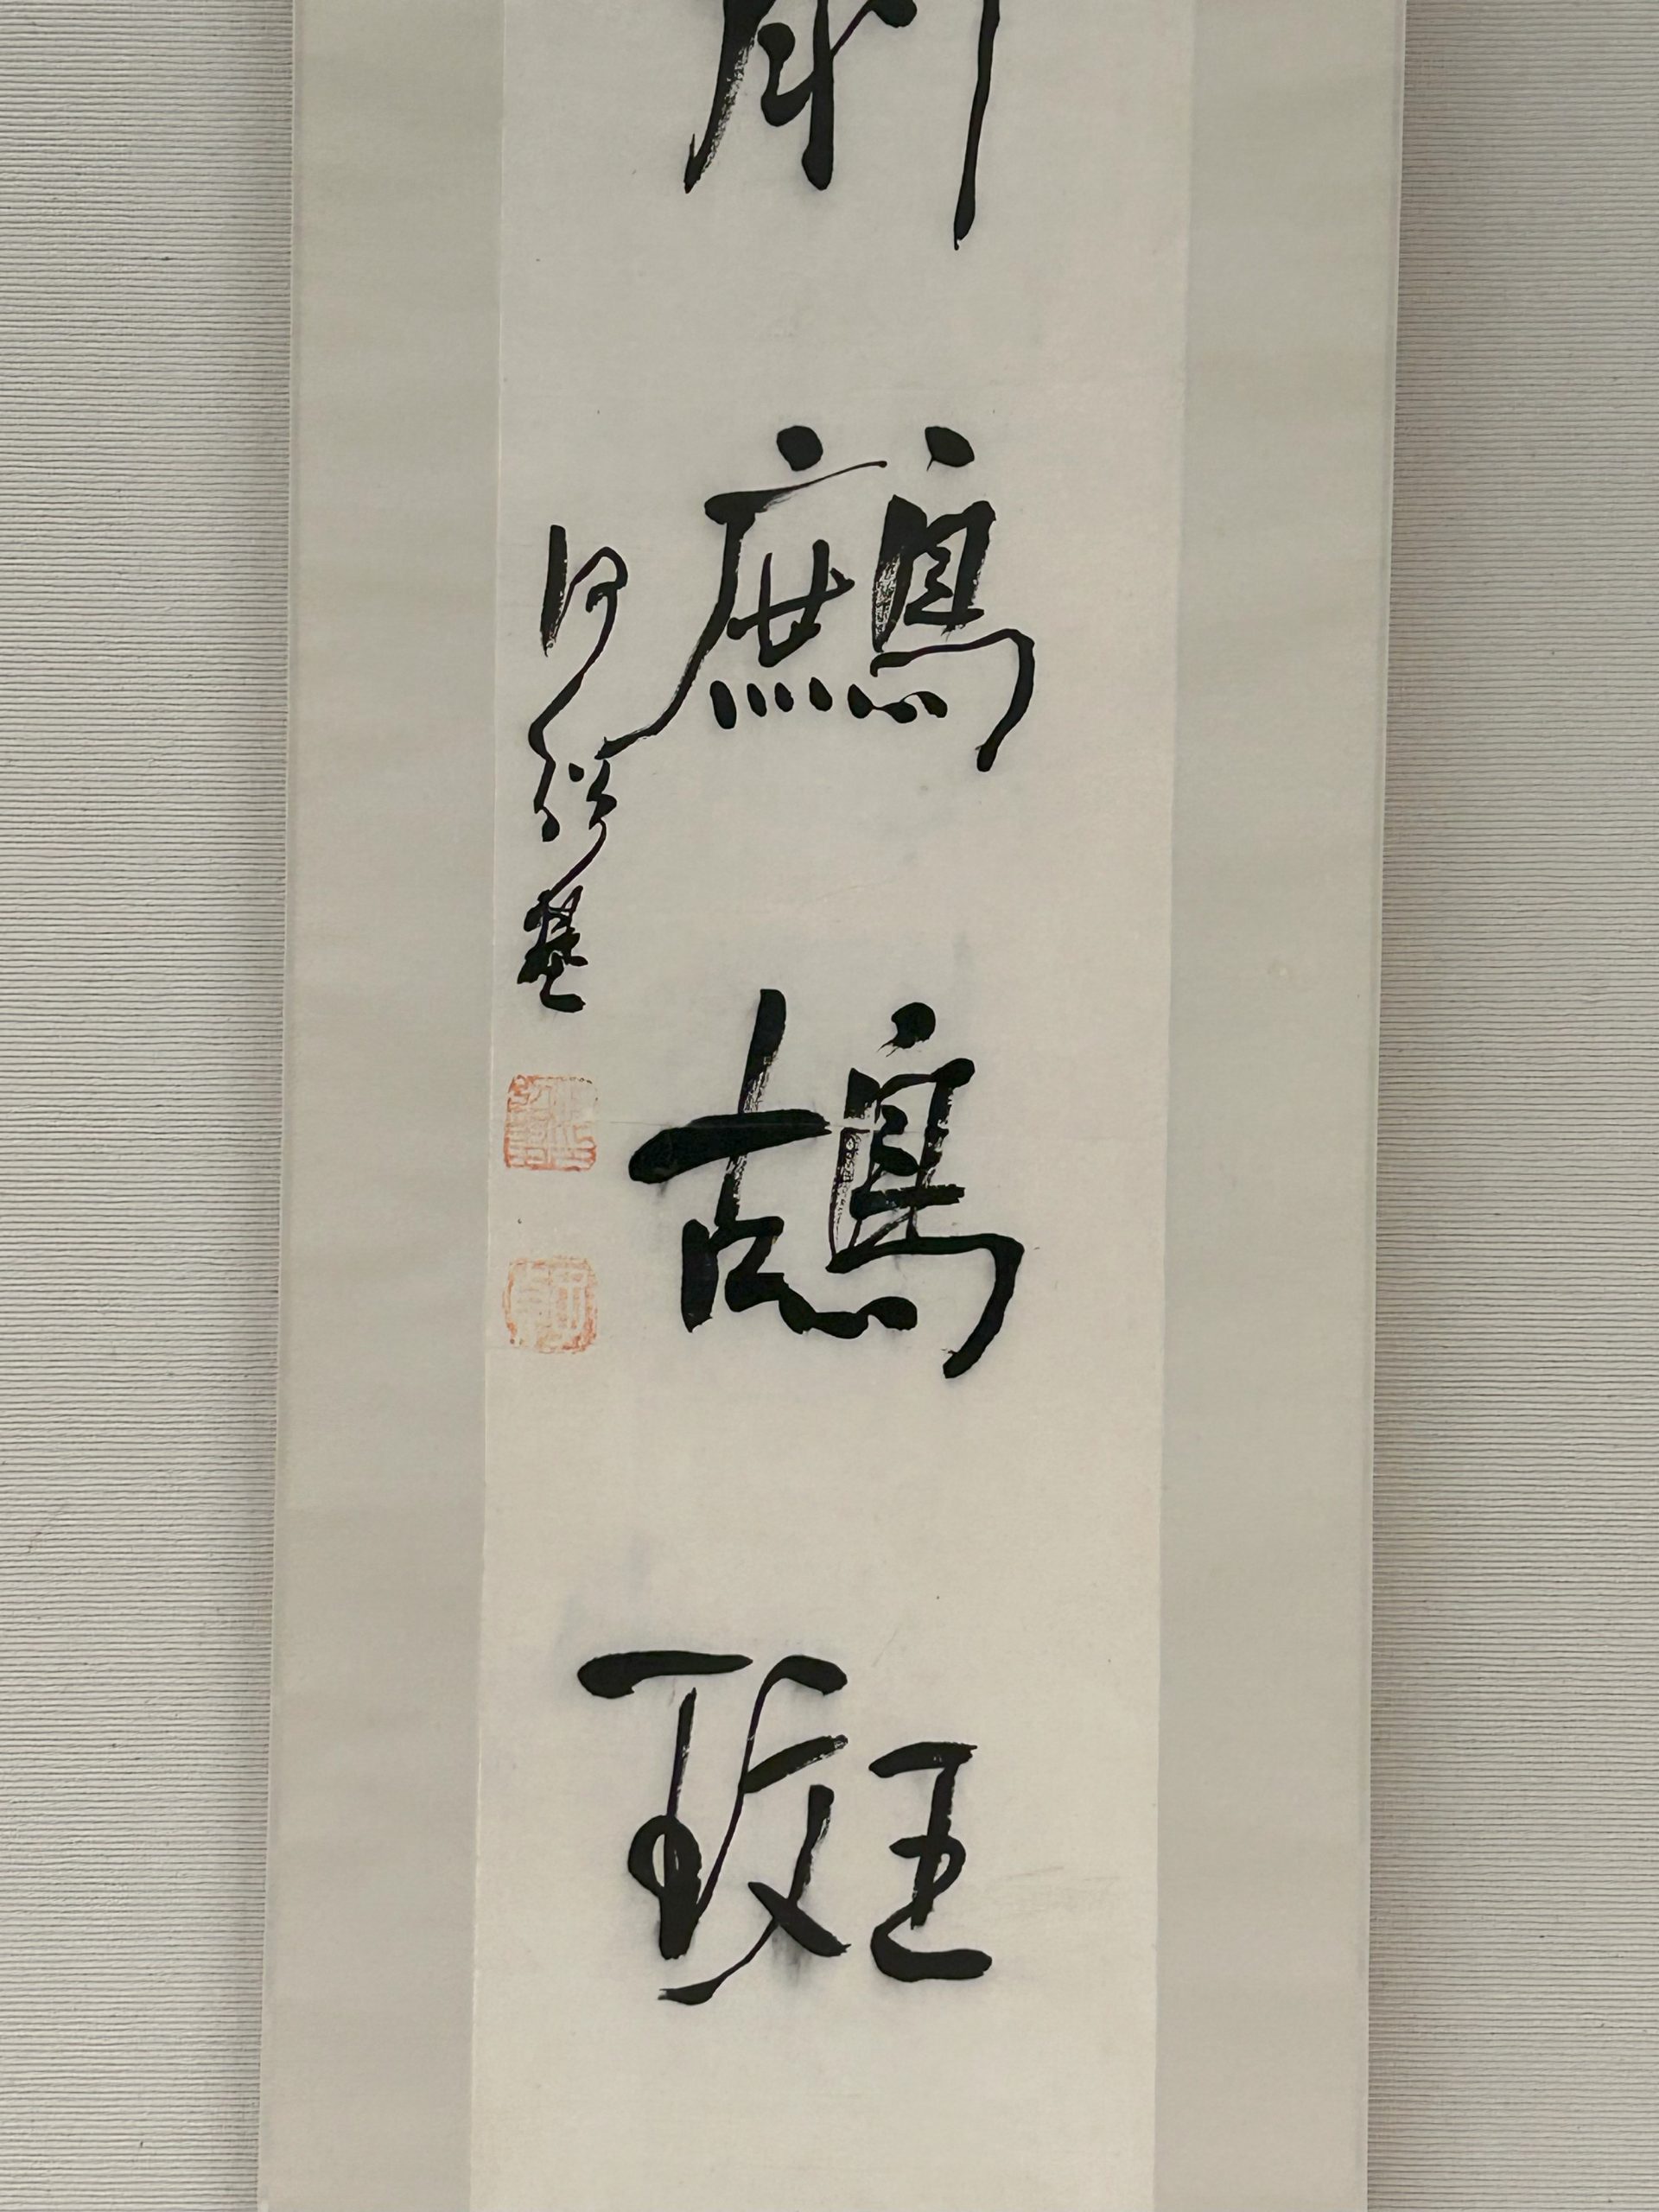 鷓鴣斑
何紹基